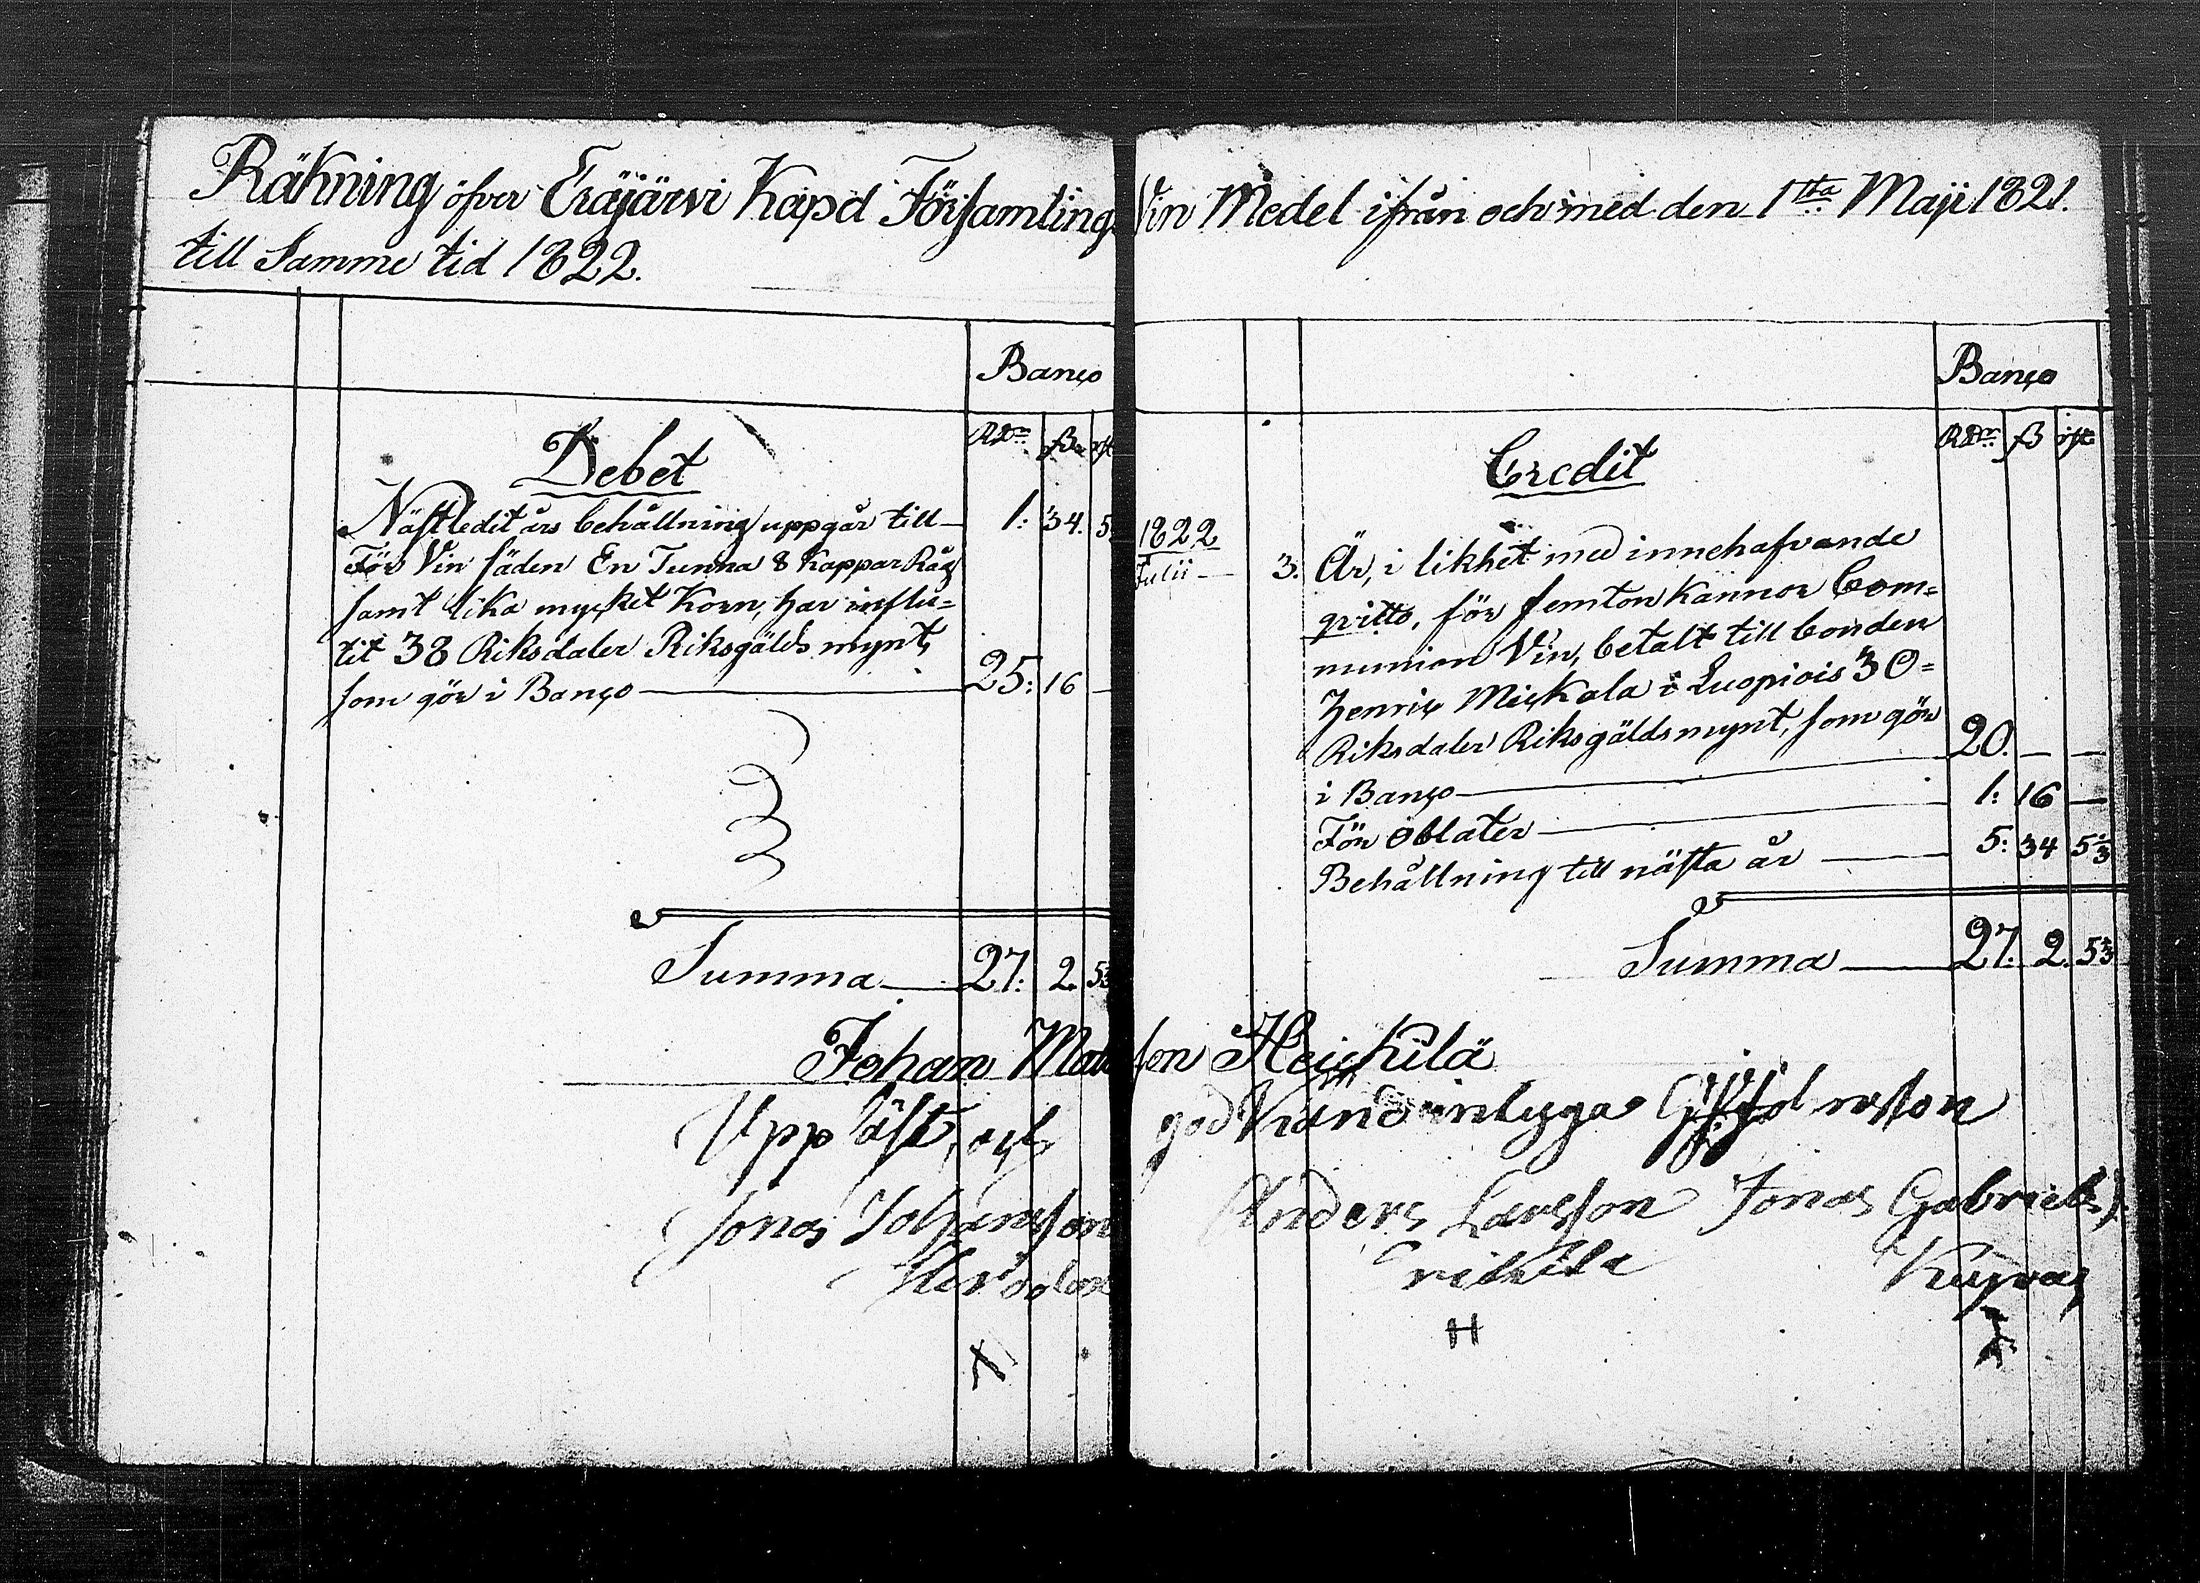 Räkning öfver Eräjärvi Kapd Församlings Vin Medel ifrån och med den 1sta Maji 1821.
till Samme tid 1822.
Banco
RDr ß rst
Debet
Nästledit års behållning uppgår till 1: 34. 5
För Vin säden En Tunna 8 Kappar Råg
samt lika mycket Korn, har influ=
tit 38 Riksdaler Riksgälds mynt,
som gör i Banco 25: 16 —
Summa 27: 2. 5⅓
Banco
RDr ß rst
Credit
1822
Julii 3. Är, i likhet med innehafvande
qvitto, för femton Kannor Com=
munion Vin, betalt till bonden
Henric Mickala i Luopiois 30=
Riksdaler Riksgälds mynt, som gör
i Banco 20. — —
För oblater 1: 16 —
Behållning till nästa år 5: 34 5⅓
Summa 27. 2. 5⅓
Johan Matsson Heickilä
Uppläst, och godkänd intyga
Jonas Johansson Anders Larsson Jonas Gabriels
Erickila